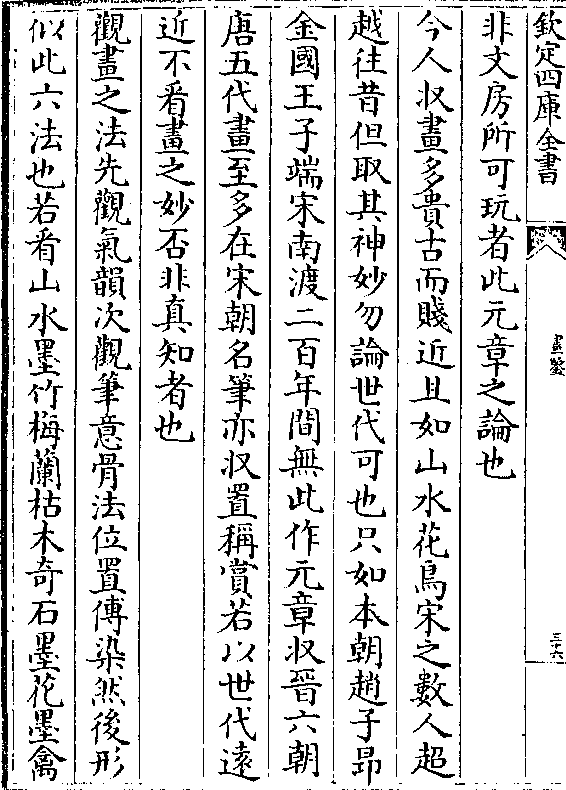 欽定四庫全書
畫鑒
三十六
非文房所可玩者此元章之論也
今人収畫多貴古而賤近且如山水花鳥宋之數人超
越往昔但取其神妙勿論世代可也只如本朝趙子昂
金國王子端宋南渡二百年間無此作元章収晉六朝
唐五代畫至多在宋朝名筆亦収置稱賞若以世代遠
近不看畫之妙否非真知者也
觀畫之法先觀氣韻次觀筆意骨法位置傅染然後形
似此六法也若看山水墨竹梅蘭枯木奇石墨花墨禽